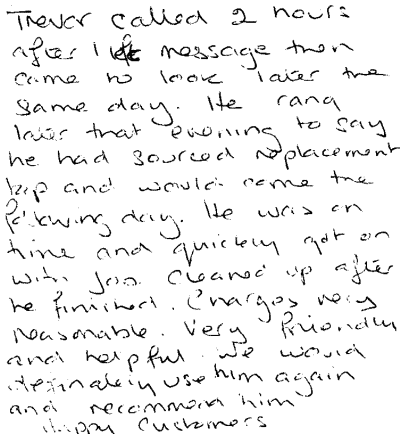 Trevor called 2 hours
after I left message then
came to look later the
same day. He rang
later that evening to say
he had sourced replacement
tap and would come the
following day. He was on
time and quickly got on
with job. Cleaned up after
he finished. Charges very
reasonable. Very friendly
and helpful. We would
definately use him again
and recommend him
Happy Customers